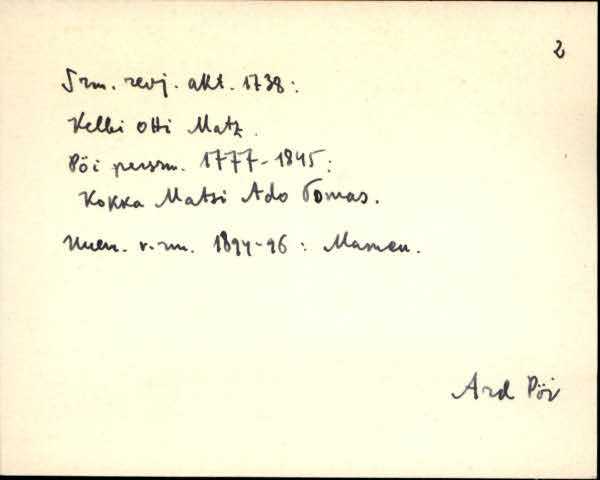 2
Srm. revj. akt. 1738:
Kelbi Otti Matz.
Pöi persrn. 1777-1845:
Kokka Matsi Ado Tomas.
v.-rm. 1894-96:
Ard Pöi